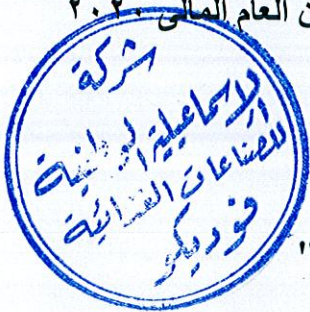 ن العام المالى ٢٠٢٠
شركة
الاسماعيلية الوطنية
للصناعات الغذائية
فوديكو
"